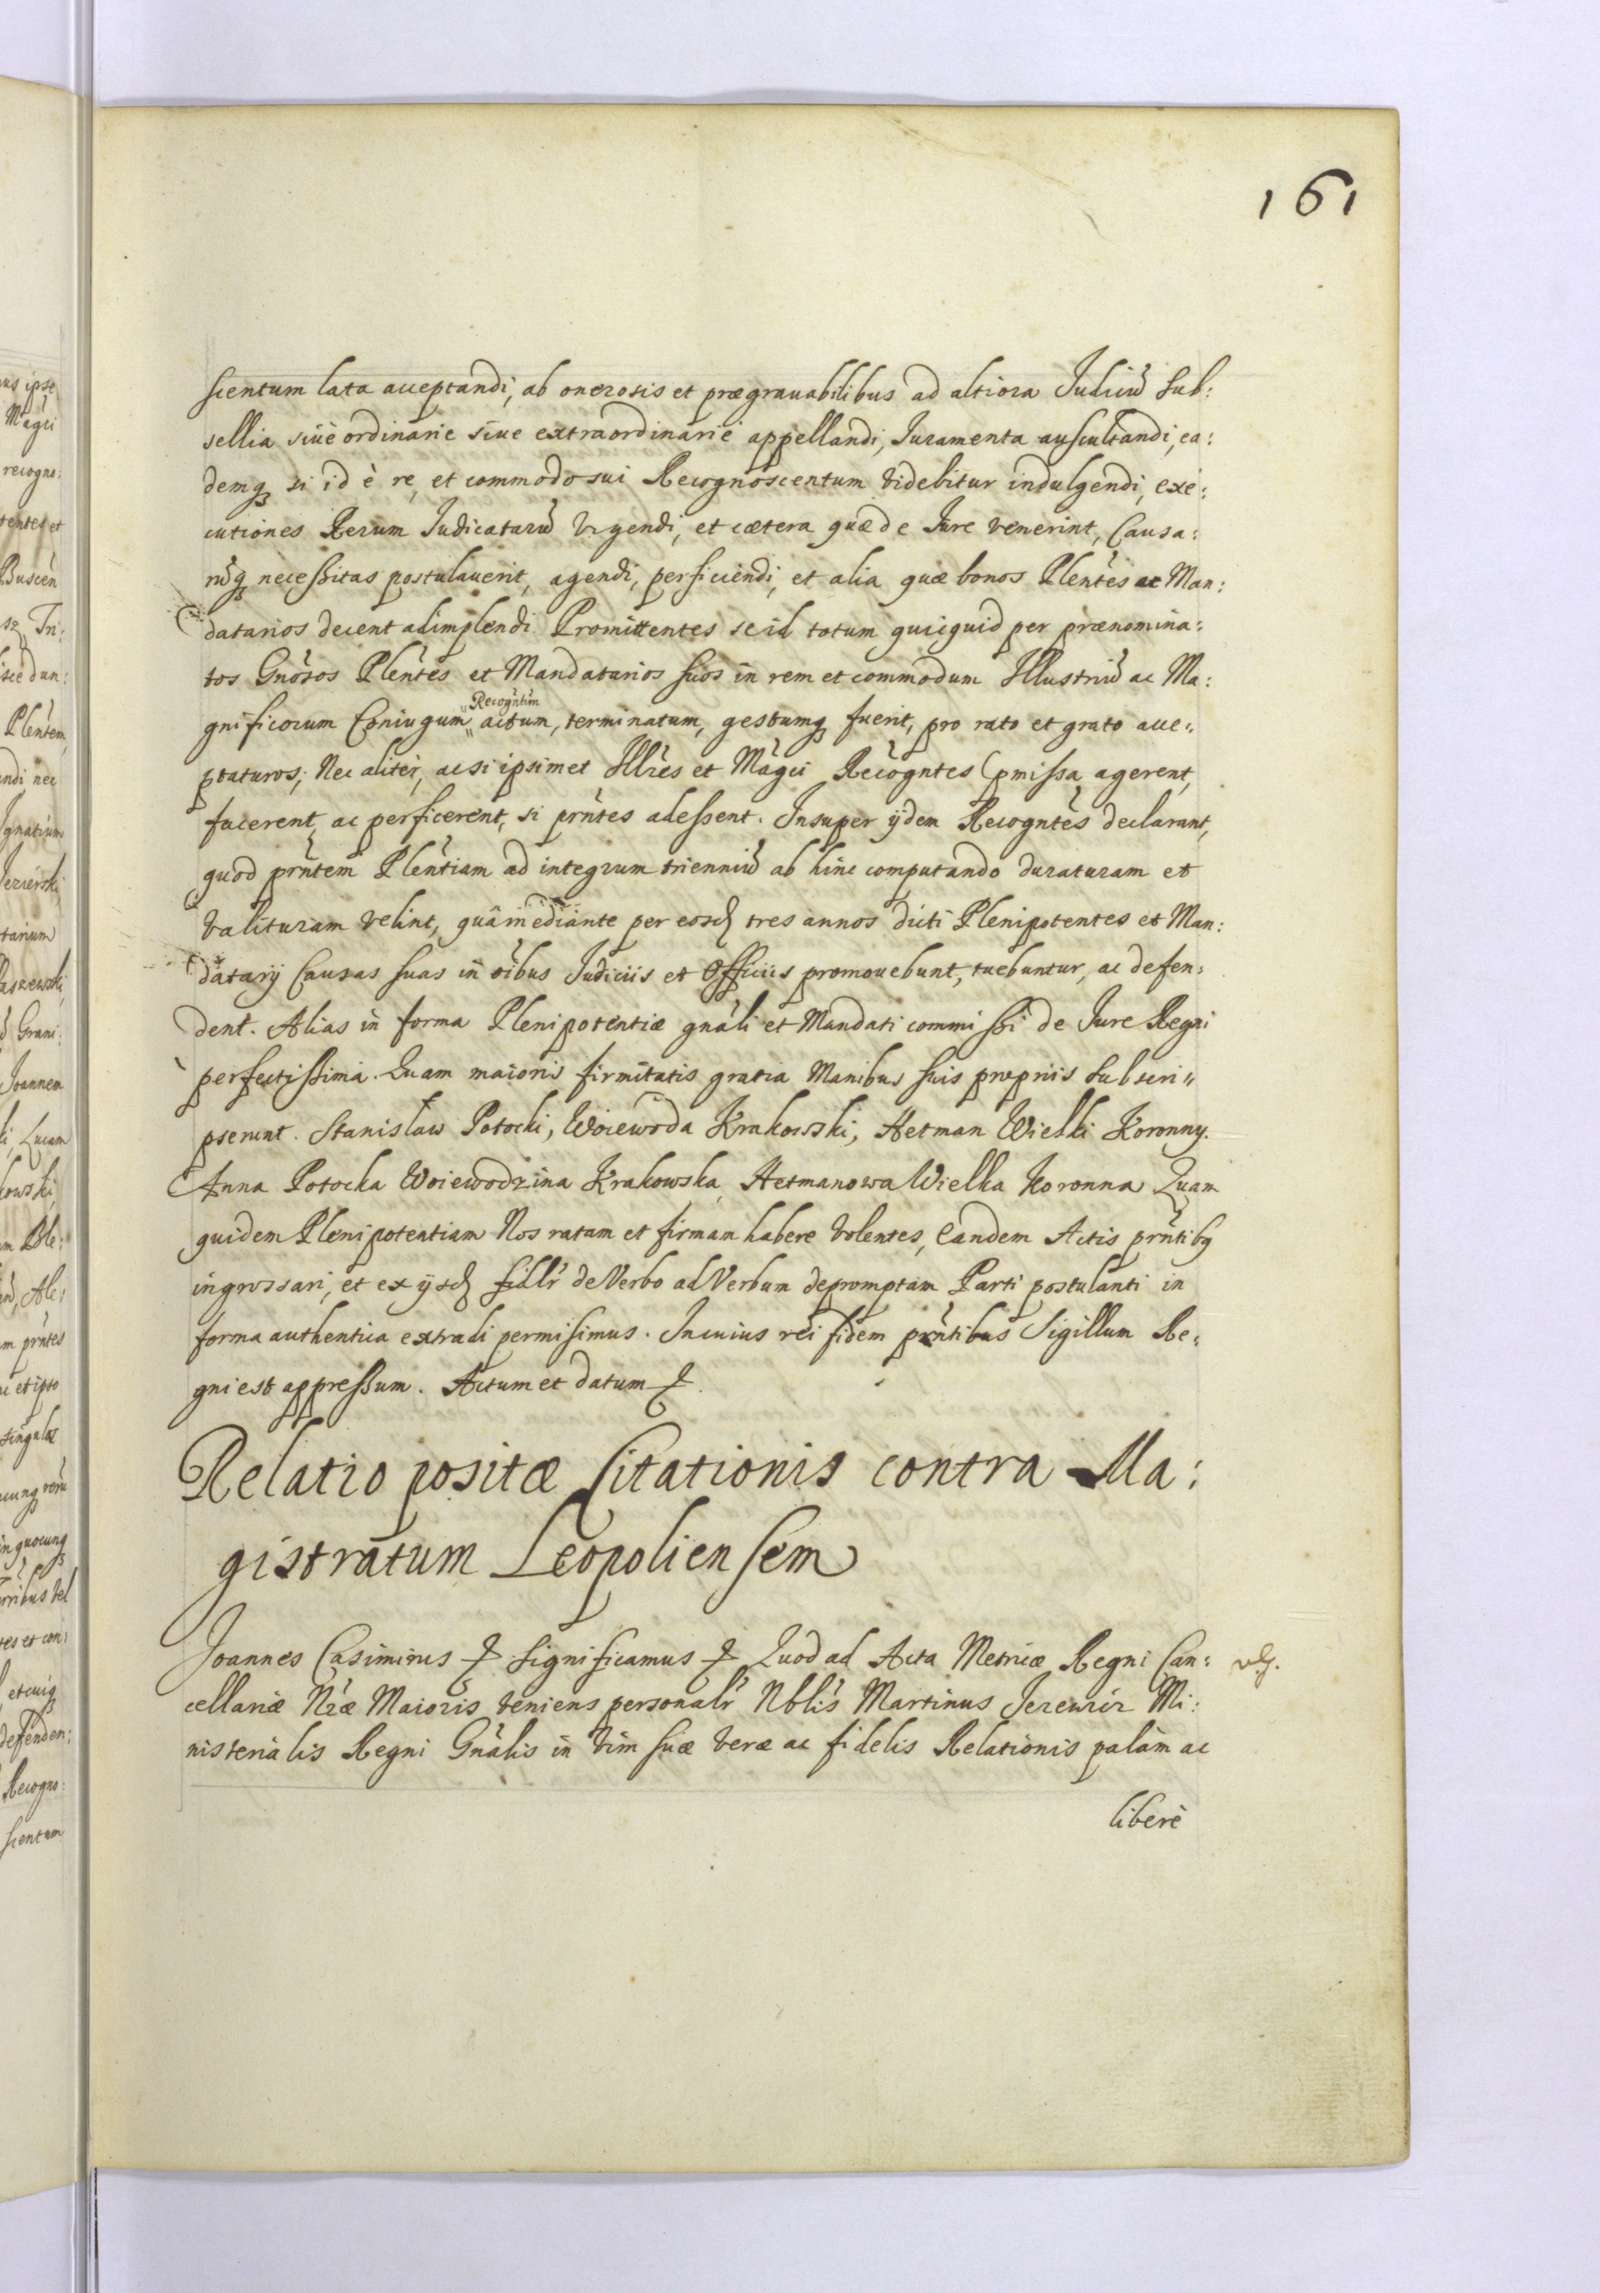 161
scentum lata acceptandi, ab onerosis et prægrauabilibus ad altiora Judiciũ sub:
sellia siuè ordinarie siue extraordinarie appellandi, Juramenta auscultandi, ea:
demq si id è re, et commodo sui Recognoscentum videbitur indulgendi, exe:
cutiones Rerum Judicatarũ Vrgendi, et cætera quæ de Jure venerint, Causa:
rũq necessitas postulauerit, agendi, perficiendi, et alia quæ bonos Plentes ac Man:
datarios decent adimplendi. Promittentes se id totum quicquid per prænomina:
tos Gnosos Plentes et Mandatarios suos in rem et commodum Illustriũ ac Ma:
gnificorum Coniugum Recogntium actum, terminatum, gestumq fuerit, pro rato et grato acce:
ptaturos; Nec aliter, ac si ipsimet Illres et Magci Recogntes pmissa agerent,
facerent, ac perficerent, si prntes adessent. Insuper ijdem Recogntes declarant,
quod prntem Plentiam ad integrum trienniũ ab hinc computando duraturam et
valituram velint, quâ mediante per eosd tres annos dicti Plenipotentes et Man:
datarij Causas suas in oibus Judiciis et Officiis promouebunt, tuebuntur, ac defen:
dent. Alias in forma Plenipotentiæ gnali et Mandati commissi de Jure Regni
perfectissima. Quam maioris firmitatis gratia Manibus suis propriis subscri:
pserunt. Stanislaw Potocki, Woiewoda Krakowski, Hetman Wielki Koronny.
Anna Potocka Woiewodzina Krakowska Hetmanowa Wielka Koronna Quam
quidem Plenipotentiam Nos ratam et firmam habere volentes, eandem Actis prntibq
ingrossari, et ex ijsd fidlr de Verbo ad Verbum depromptam Parti postulanti in
forma authentica extradi permisimus. In cuius rei fidem prntibus Sigillum Re:
gni est appressum. Actum et datum
Relatio positæ Citationis contra Ma:
gistratum Leopoliensem
Joannes Casimirus significamus Quod ad Acta Metricæ Regni Can:
cellariæ Nræ Maioris veniens personalr Nblis Martinus Jerewicz Mi:
nisterialis Regni Gnalis in vim suæ veræ ac fidelis Relationis palàm ac
liberè